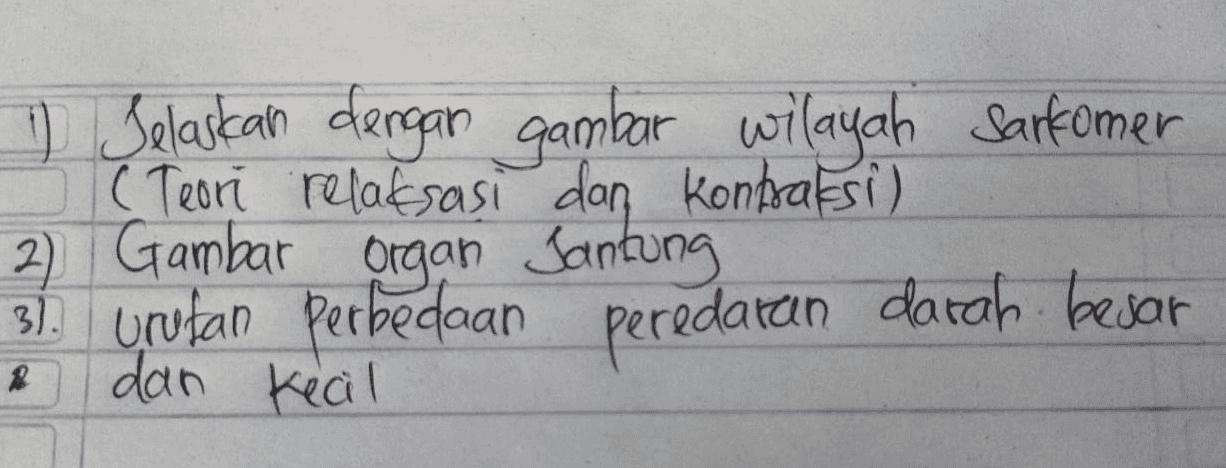 1) Jelaskan dengan gambar wilayah Sarkomer
(Teori relaksasi dan Kontraksi)
2) Gambar organ Jantung
3). Urutan Perbedaan peredaran darah besar
dan Kecil